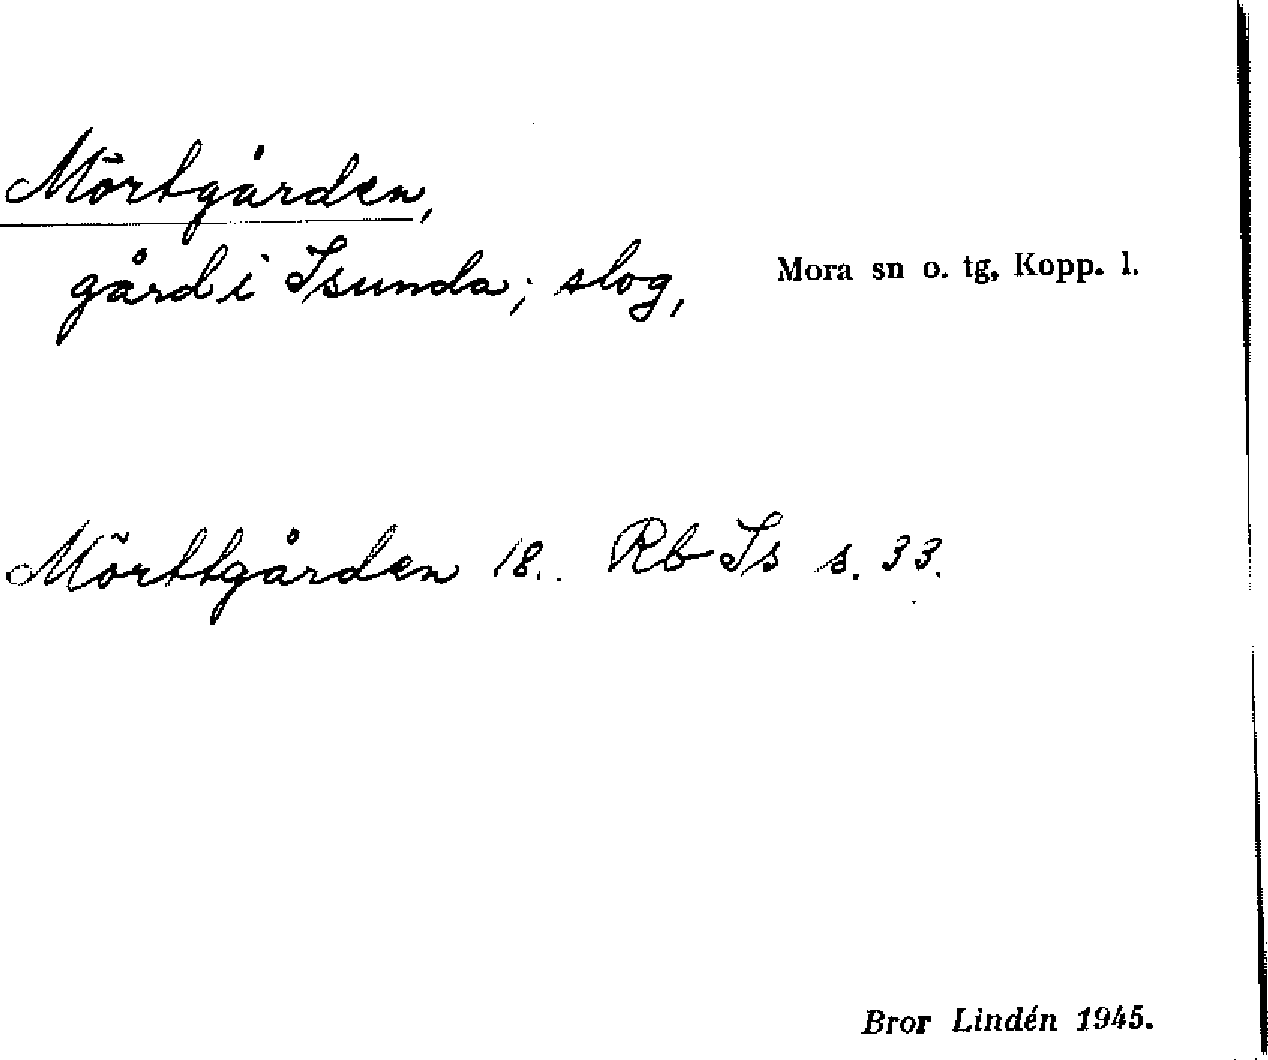 Mörtgården,
gård i Isunda; slog,
Mora sn o. tg, Kopp. l.
Mörttgården 18.. Rb Is s. 33.
Bror Lindén 1945.